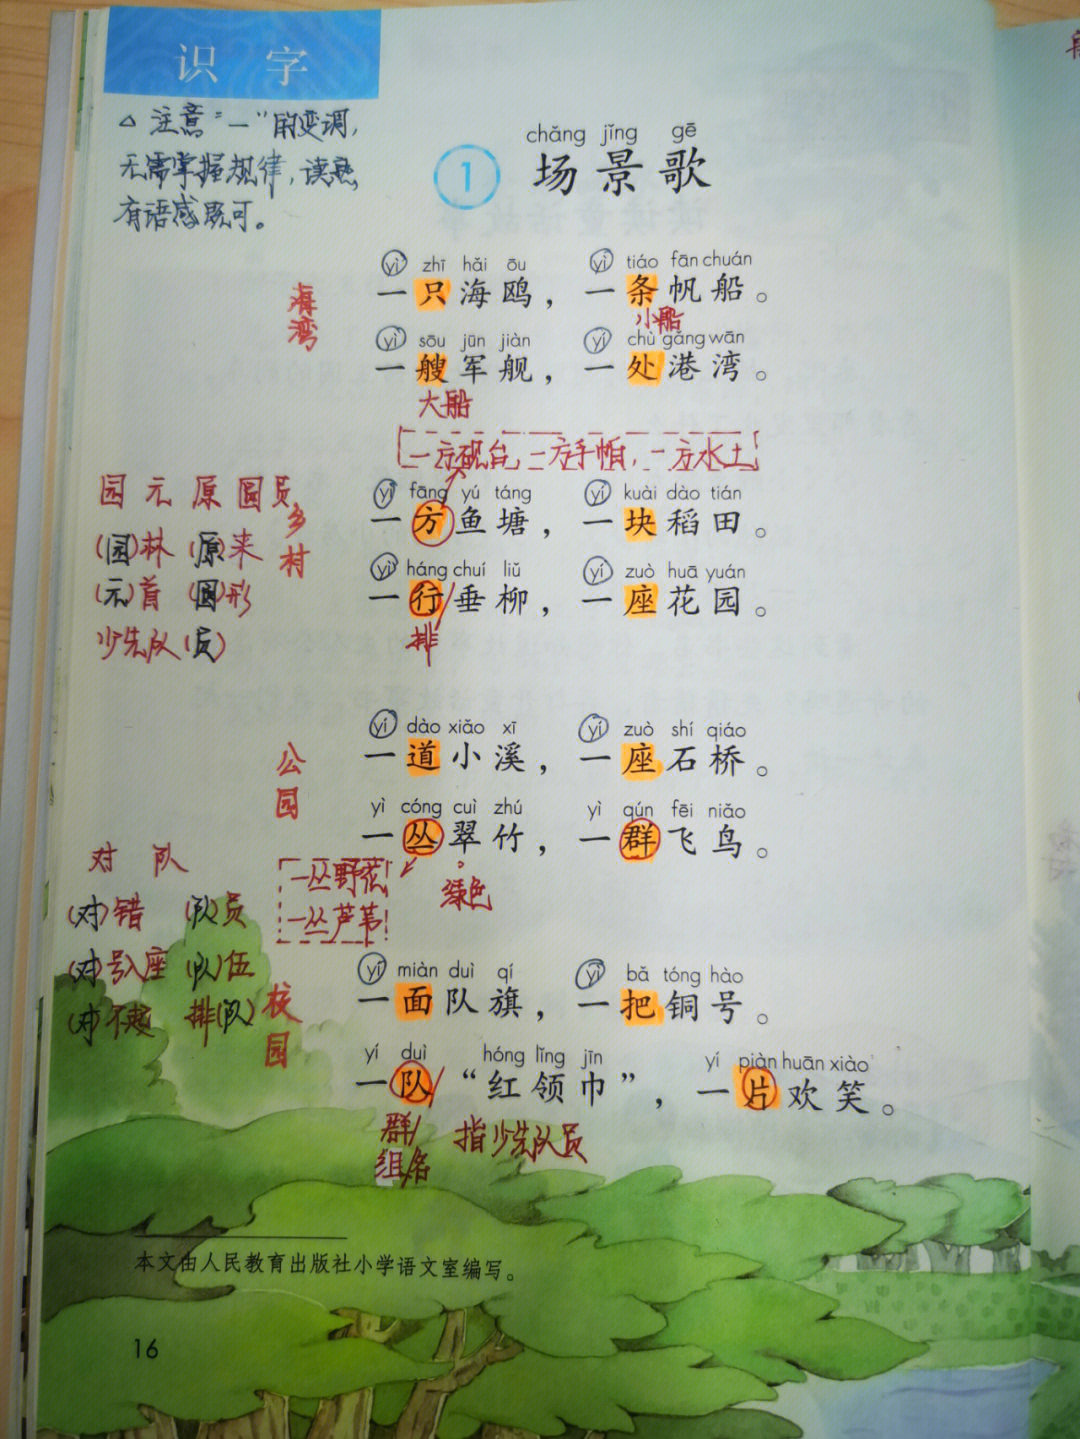 识 字
△ 注意“一”的变调,
无需掌握规律,读熟,
有语感既可。
chǎng jǐng gē
1 场景歌
yì zhī hǎi ōu yì tiáo fān chuán
一只海鸥，一条帆船。
小船
yì sōu jūn jiàn yí chù gǎng wān
一艘军舰，一处港湾。
大船
海湾
一方砚台,一方手帕,一方水土
yì fāng yú táng yí kuài dào tián
一方鱼塘，一块稻田。
yì háng chuí liǔ yí zuò huā yuán
一行垂柳，一座花园。
排
乡村
园 元 原 圆 员
(园)林 (原)来
(元)首 (圆)形
少先队(员)
yí dào xiǎo xī yí zuò shí qiáo
一道小溪，一座石桥。
yì cóng cuì zhú yì qún fēi niǎo
一丛翠竹，一群飞鸟。
公园
绿色
一丛芦苇
对 队
(对)错 (队)员
(对)号入座 (队)伍
排(队)
yí miàn duì qí yì bǎ tóng hào
一面队旗，一把铜号。
yí duì hóng lǐng jīn yí piàn huān xiào
一队“红领巾”，一片欢笑。
校园
群/
组/名
指少先队员
本文由人民教育出版社小学语文室编写。
16